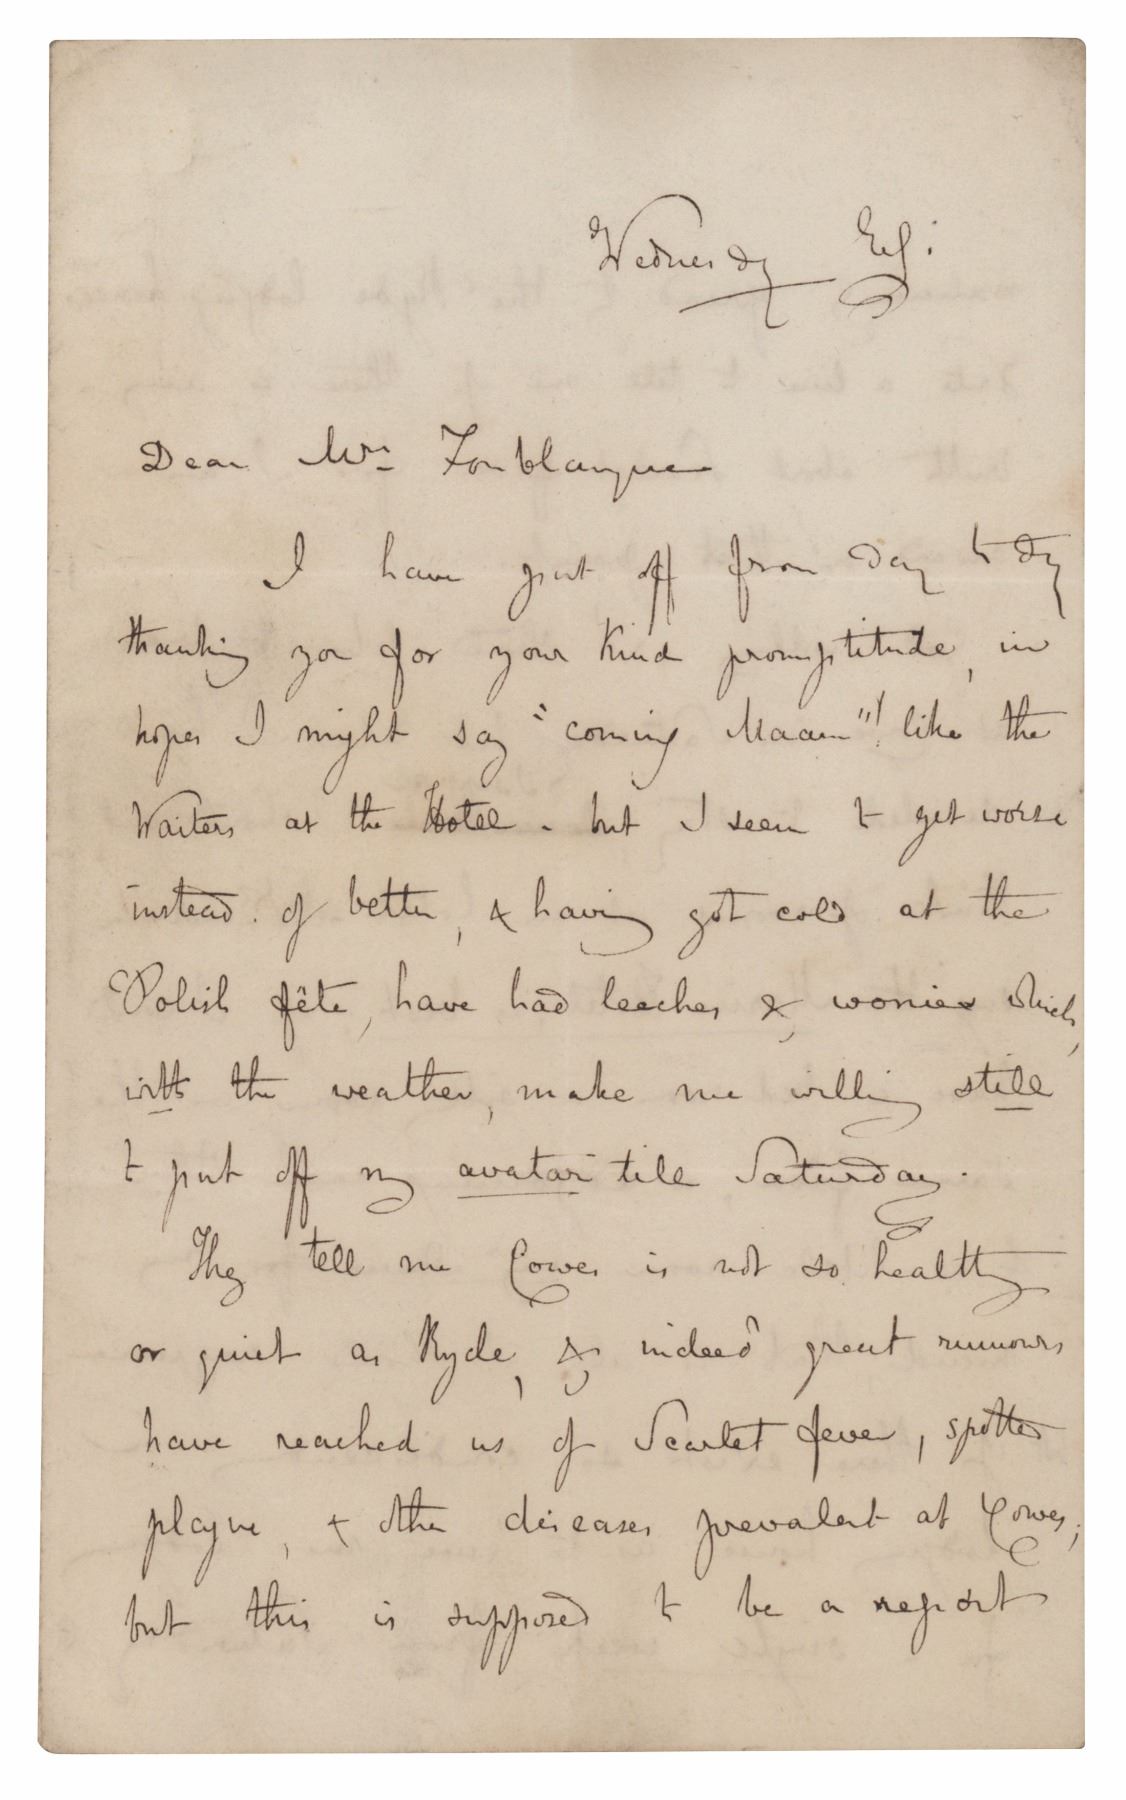 Wednesdy Eg:
Dear Mrs Fonblanque
I have put off from day to dy
thanking you for your kind promptitude, in
hopes I might say "coming Maam"! like the
Waiters at the Hotel - but I seem to get worse
instead of better, & having got cold at the
Polish fête, have had leeches & worries which,
with the weather, make me willing still
to put off my avatar till Saturday.
They tell me Cowes is not so healthy
or quiet as Ryde, & indeed great rumours
have reached us of Scarlet fever, spotted
plague, & other diseases prevalent at Cowes;
but this is supposed to be a report